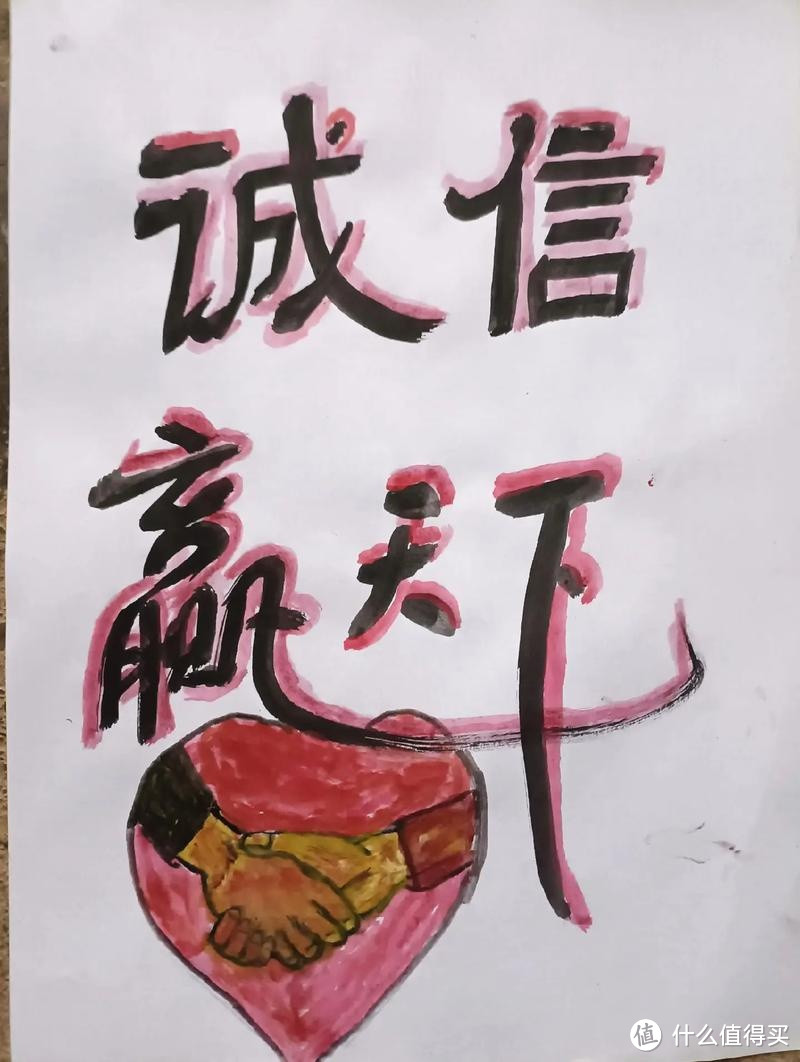 诚信
赢天下
值 什么值得买